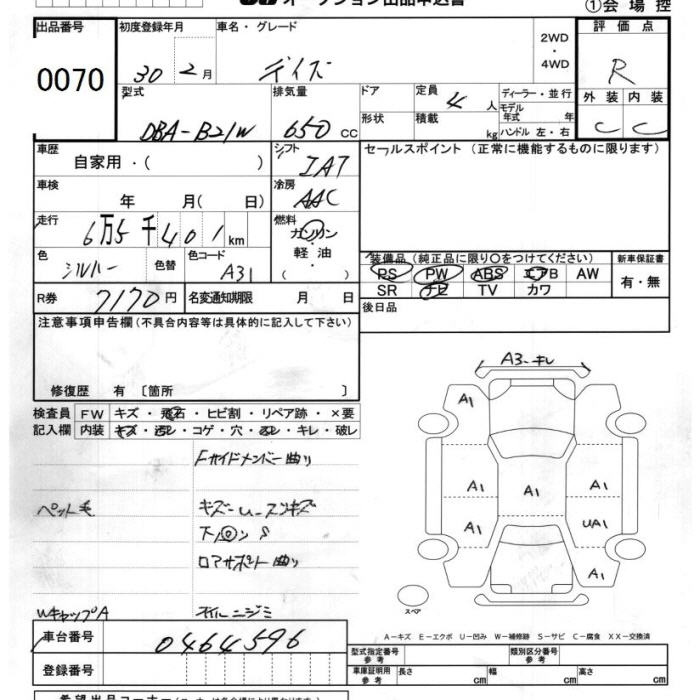 オークション出品申込書
①会場控
出品番号 初度登録年月 車名・グレード 2WD・4WD 評価点
0070 30 2月 デイズ R
型式 排気量 ドア 定員 4人 ディーラー・並行 外装 内装
DBA-B21W 650 CC 形状 積載 kg モデル年式 年 C C
ハンドル 左・右
車歴 自家用・( ) シフト IAT セールスポイント (正常に機能するものに限ります)
車検 年 月( 日) 冷房 AAC
走行 6万5千401km 燃料 ガソリン・軽油・( )
色 シルバー 色替 色コード A31
装備品 (純正品に限り○をつけてください) 新車保証書
PS PW ABS エアB AW 有・無
SR ナビ TV カワ
R券 7170円 名変通知期限 月 日 後日品
注意事項申告欄(不具合内容等は具体的に記入して下さい)
修復歴 有 〔箇所 〕
検査員 FW キズ・飛石・ヒビ割・リペア跡・×要
記入欄 内装 キズ・汚レ・コゲ・穴・キレ・破レ
Fサイドメンバー曲り
ペット毛
ロアサポート曲り
WキャップA オイルニジミ
A3 キレ
A1
A1 A1 A1
A1 UA1
A1
スペア
A-キズ E-エクボ U-凹み W-補修跡 S-サビ C-腐食 XX-交換済
車台番号 0464596
登録番号
型式指定番号 参考 類別区分番号 参考
車庫証明用 参考 長さ cm 幅 cm 高さ cm